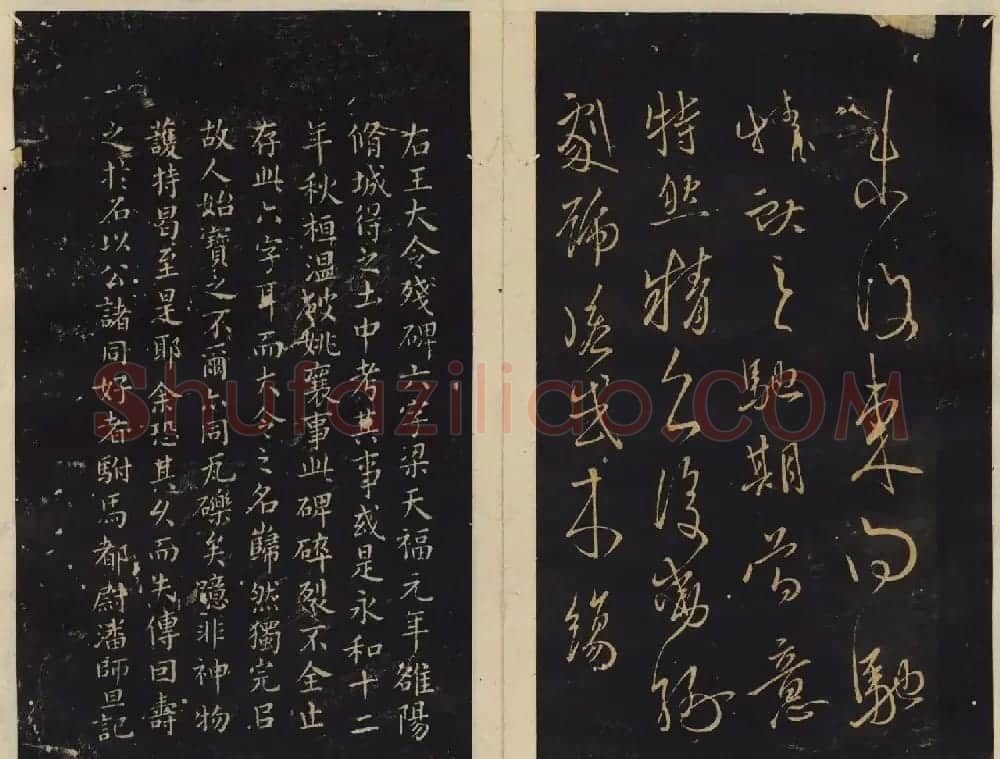 東向馳
情之馳期當意
特然精久復
劇歸
右王大令殘碑六字梁天福元年雒陽
脩城得之土中考其事或是永和十二
年秋桓温破姚襄事此碑碎裂不全止
存此六字耳而大令之名巋然獨完㠯
故人始寶之不爾亦同瓦礫矣非神物
護持曷至是耶余恐其久而失傳回壽
之於石以公諸同好者駙馬都尉潘師旦記
Shufaziliao.COM